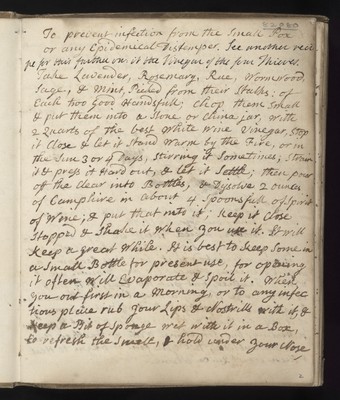 To prevent infection from the Small Pox
or any Epidemecal Distemper. See another recei
pe for this further on. it the Vinegar of the four Thieves.
Take Lavender, Rosemary, Rue, Wormwood,
Sage, & Mint, Picked from their Stalks: of
Each two Good Handsfull; Chop them Small
& put them into a Stone or China jar, with
2 Quarts of the best White Wine Vinegar, Stop
it Close & let it Stand Warm by the Fire, or in
the Sun 3 or 4 Days, Stirring it Sometimes; Strain
it & press it Hard out, & let it Settle; then pour
off the clear into Bottles, & Dissolve 2 ounces
of Camphire in about 4 Spoonsfull of Spirit
of Wine; & put that into it; Keep it Close
Stopped & Shake it When you use it. It will
Keep a great While. It is best to Keep Some in
a Small Bottle for present use, for opening
it often Will Evaporate & Spoil it. When
you Out first in a Morning, or to any infec
tious place rub your Lips & Nostrills with it, &
Keep a Bit of Sponge wet with it in a Box,
to refresh the Smell, & hold under your Nose
2